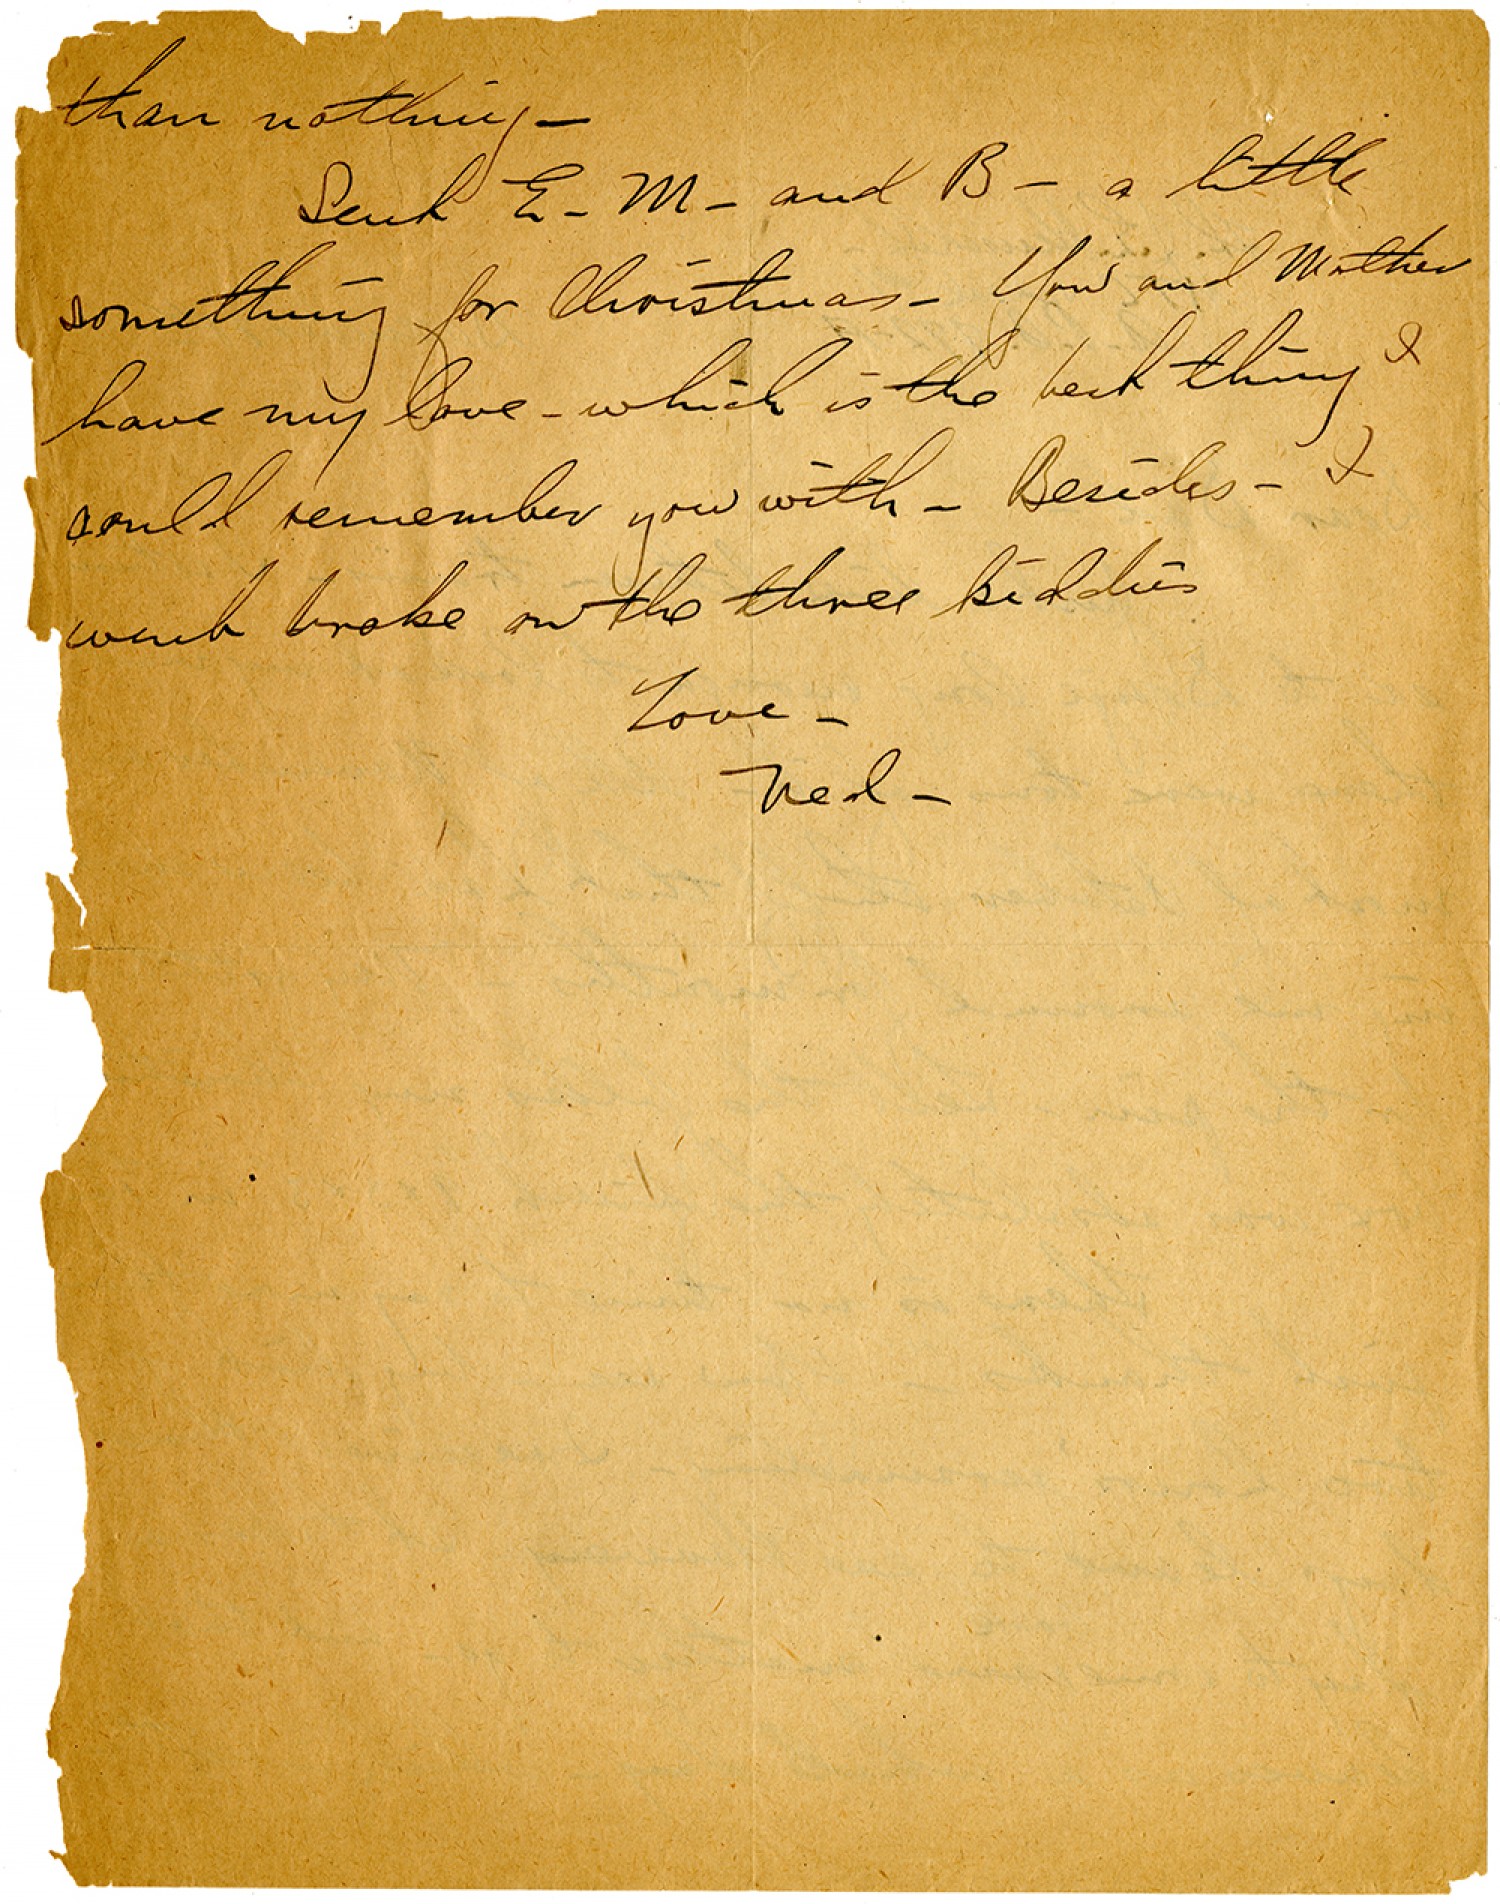 than nothing —
Sent E — M — and B — a little
something for Christmas — You and Mother
have my love — which is the best thing I
could remember you with — Besides — I
went broke on the three kiddies
Love —
Ned —